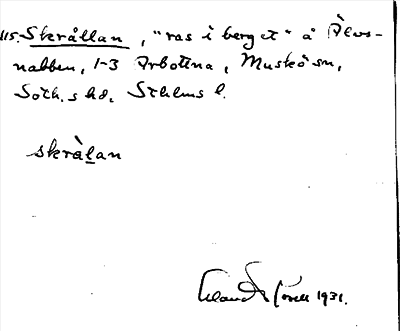 115. Skrållan, "ras i berget" å Älvs-
nabben, 1-3 Arbottna, Muskö sn,
Soth.s hd, Sthlms l.
skrål̲an
1931.